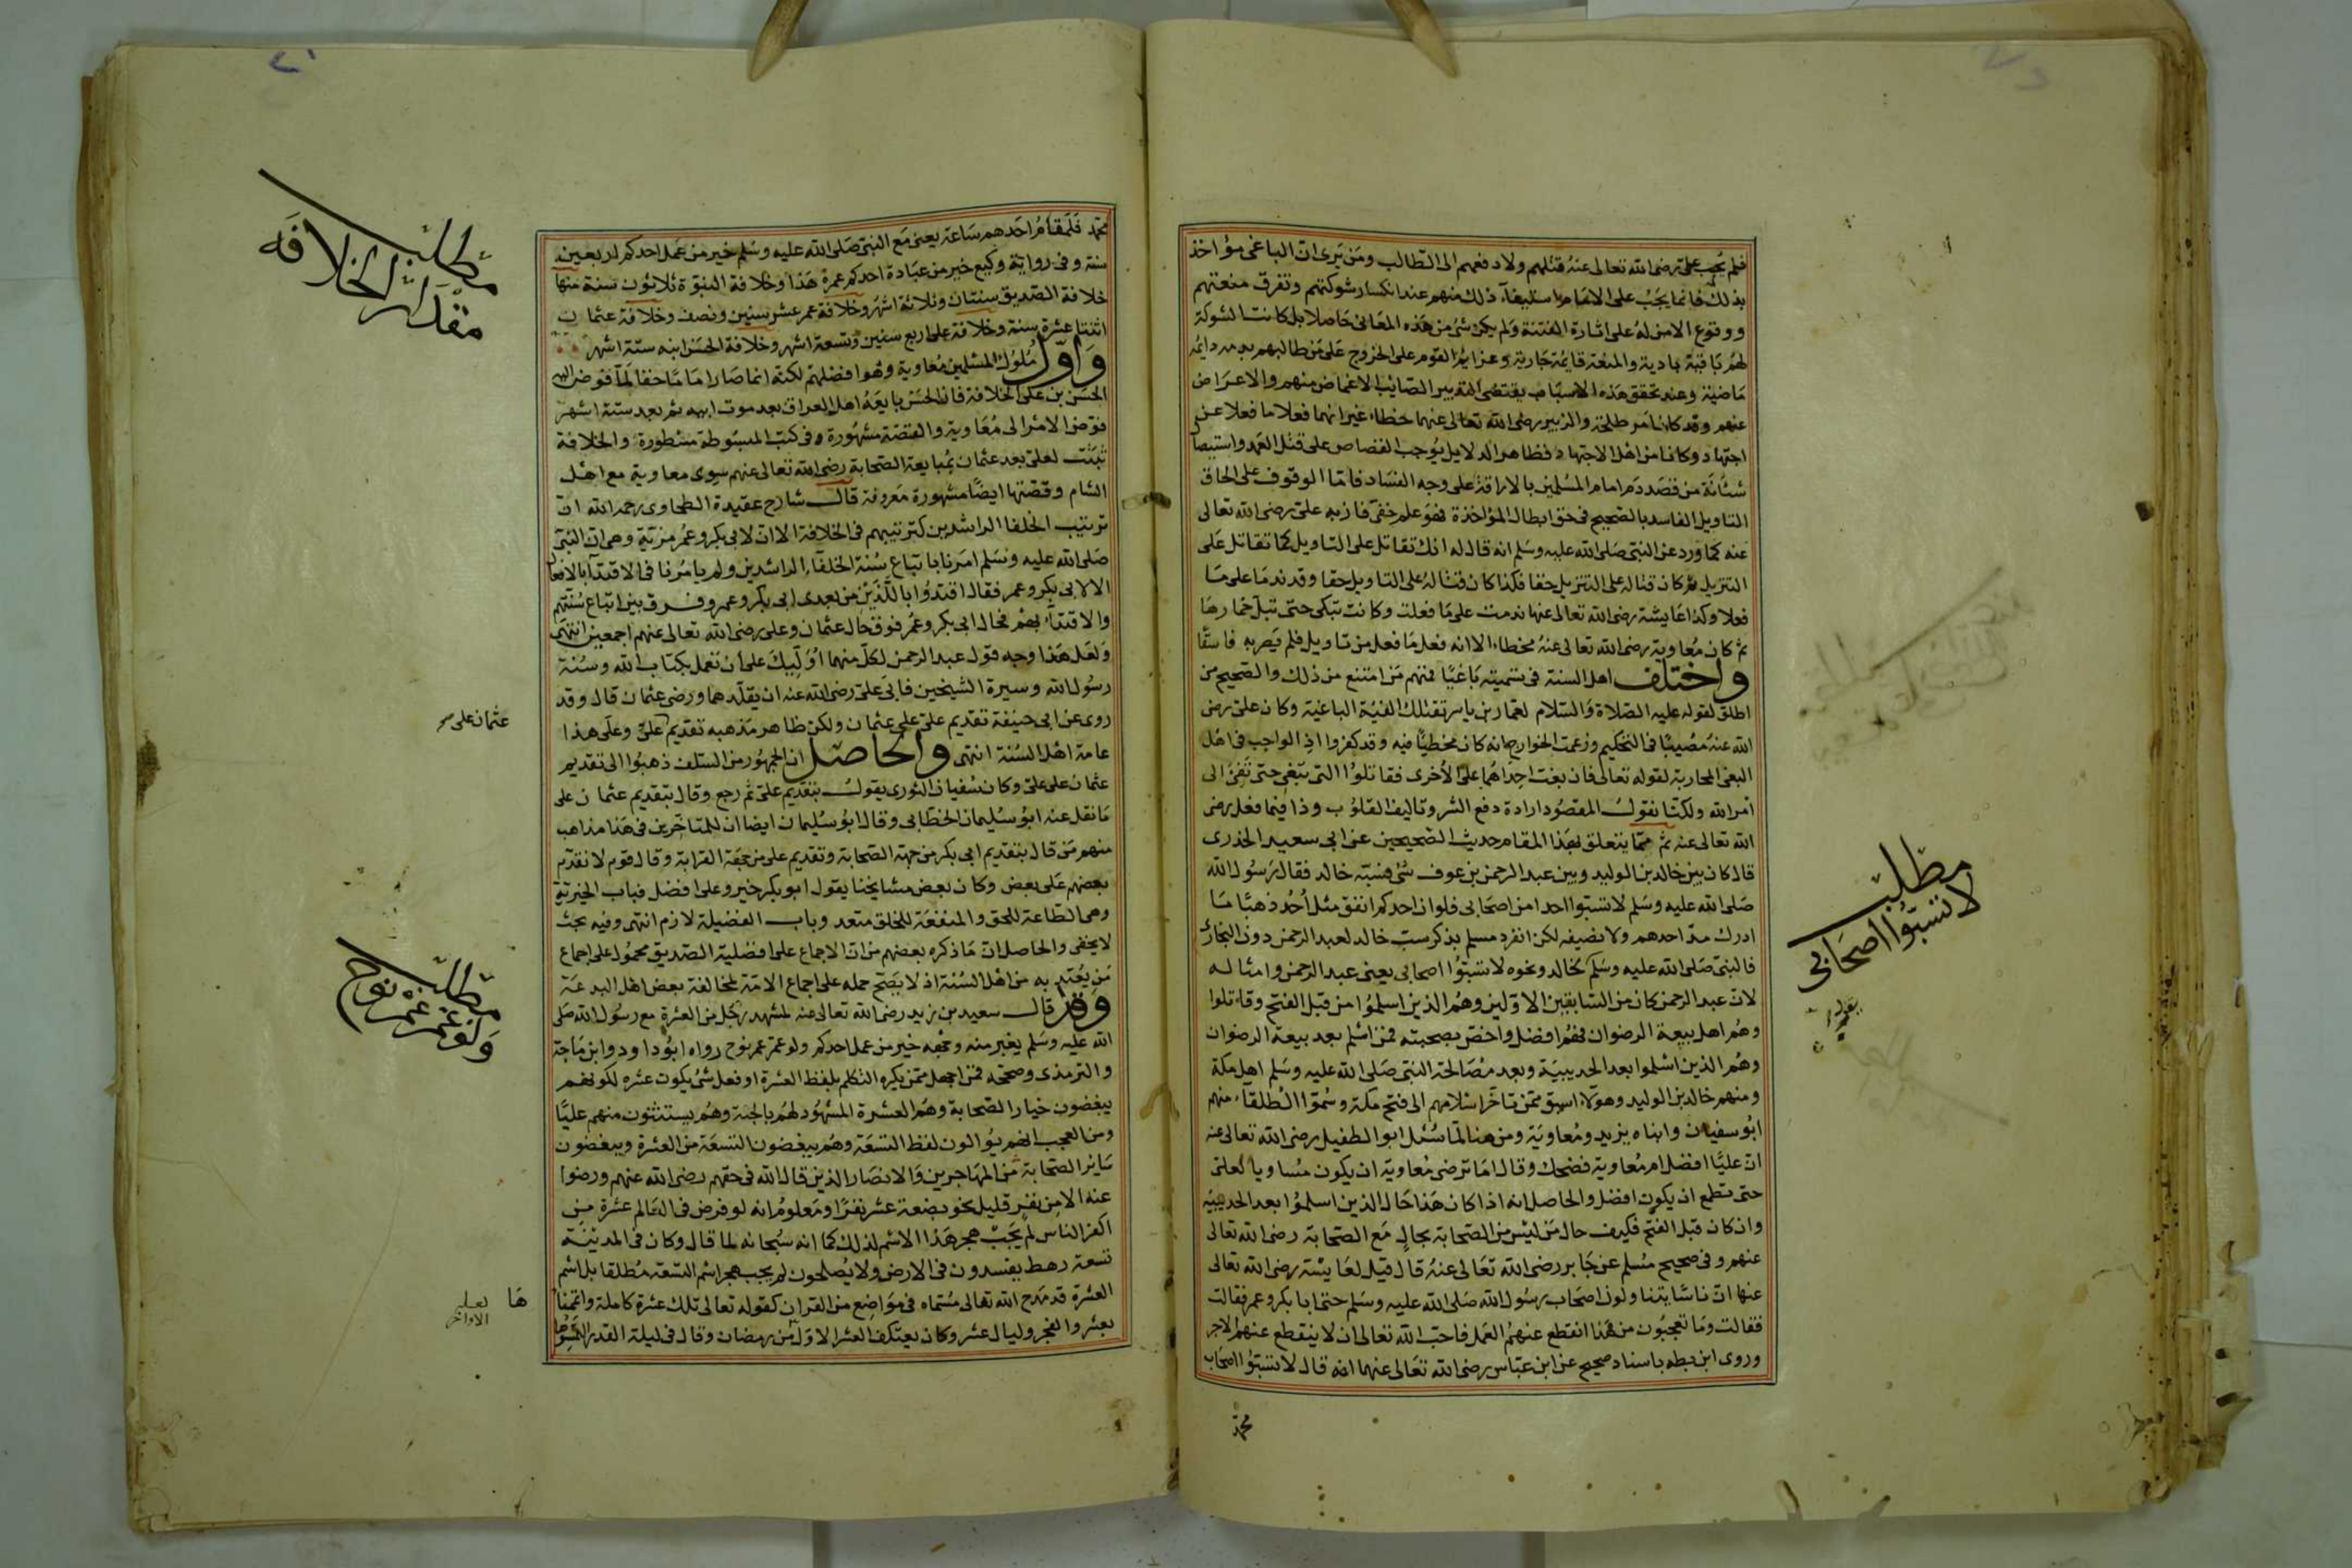 فلم يجب على على رضى الله تعالى عنه قتلهم ولا دفعهم الى الطالب ومن يرى ان الباغى مؤاخذ
بذلك فانما يجب على الامام استيفاء ذلك منهم عند انكسار شوكتهم وتفرق منعتهم
ووقوع الامن له على اثارة الفتنة ولم يكن شئ من هذه المعانى حاصلا بل كانت الشوكة
لهم باقية بادية والمنعة قايمة جارية وعزايم القوم على الخروج على من طالبهم بدمه دايمة
ماضية وعند تحقق هذه الاسباب يقتضى التدبير الصايب الاغماض منهم والاعراض
عنهم وقد كان امر طلحة والزبير رضى الله تعالى عنهما خطاء غير انهما فعلا ما فعلا عن
اجتهاد وكانا من اهل الاجتهاد فظاهر الدلايل يوجب القصاص على قتل العمد واستيصال
شانة من قصد دم امام المسلمين بالاراقة على وجه الفساد فاما الوقوف على الحاق
التاويل الفاسد بالصحيح فى حق ابطال المؤاخذة فهو علم خفى فاز به على رضى الله تعالى
عنه كما ورد عن النبى صلى الله عليه وسلم انه قال له انك تقاتل على التاويل كما تقاتل على
التنزيل ثم كان قتاله على التنزيل حقا فكذا كان قتاله على التاويل حقا وقد ندما على ما
فعلا وكذا عايشة رضى الله تعالى عنها ندمت على ما فعلت وكانت تبكى حتى تبل خمارها
ثم كان معاوية رضى الله تعالى عنه مخطاء الا انه فعل ما فعل من تاويل فلم يصر به فاسقا
واختلف اهل السنة فى تسميته باغيا فمنهم من امتنع من ذلك والصحيح من
اطلق لقوله عليه الصلاة والسلام لعمار بن ياسر تقتلك الفئة الباغية وكان على رضى
الله عنه مصيبا فى التحكيم وزعمت الخوارج انه كان مخطيا فيه وقد كفروا اذ الواجب فى اهل
البغى المحاربة لقوله تعالى فان بغت احداهما على الاخرى فقاتلوا التى تبغى حتى تفئ الى
امر الله ولكنا نقول المقصود ارادة دفع الشر وتاليف القلوب وذا فيما فعل رضى
الله تعالى عنه ثم مما يتعلق بهذا المقام حديث الصحيحين عن ابى سعيد الخدرى
قال كان بين خالد بن الوليد وبين عبد الرحمن بن عوف شئ فسبه خالد فقال رسول الله
صلى الله عليه وسلم لا تسبوا احدا من اصحابى فلو ان احدكم انفق مثل احد ذهبا ما
ادرك مد احدهم ولا نصيفه لكن انفرد مسلم بذكر سب خالد لعبد الرحمن دون البخارى
فالنبى صلى الله عليه وسلم لخالد ونحوه لا تسبوا اصحابى يعنى عبد الرحمن وامثاله
لان عبد الرحمن كان من السابقين الاولين وهم الذين اسلموا من قبل الفتح وقاتلوا
وهم اهل بيعة الرضوان فهم افضل واخص بصحبته فمن اسلم بعد بيعة الرضوان
وهم الذين اسلموا بعد الحديبية وبعد مصالحة النبى صلى الله عليه وسلم اهل مكة
ومنهم خالد بن الوليد وهولاء اسبق ممن تاخر اسلامهم الى فتح مكة وسموا الطلقاء منهم
ابو سفيان وابناه يزيد ومعاوية ومن هنا لما سئل ابو الطفيل رضى الله تعالى عنه
ان عليا افضل ام معاوية فضحك وقال اما ترضى معاوية ان يكون مساويا لعلى
حتى تطمع ان يكون افضل والحاصل انه اذا كان هذا حال الذين اسلموا بعد الحديبية
وان كان قبل الفتح فكيف حال من ليس من الصحابة بحال مع الصحابة رضى الله تعالى
عنهم وفى صحيح مسلم عن جابر رضى الله تعالى عنه قال قيل لعايشة رضى الله تعالى
عنها ان ناسا يتناولون اصحاب رسول الله صلى الله عليه وسلم حتى ابا بكر وعمر فقالت
فقالت وما تعجبون من هذا انقطع عنهم العمل فاحب الله تعالى ان لا ينقطع عنهم الاجر
وروى ابن بطه باسناد صحيح عن ابن عباس رضى الله تعالى عنهما انه قال لا تسبوا اصحاب
محمد
مطلب
لا تسبوا اصحابى
محمد فلمقام احدهم ساعة يعنى مع النبى صلى الله عليه وسلم خير من عمل احدكم اربعين
سنة وفى رواية وكيع خير من عبادة احدكم عمره هذا وخلافة النبوة ثلاثون سنة منها
خلافة الصديق سنتان وثلاثة اشهر وخلافة عمر عشر سنين ونصف وخلافة عثمان
اثنتا عشرة سنة وخلافة على اربع سنين وتسعة اشهر وخلافة الحسن ابنه ستة اشهر
واول ملوك المسلمين معاوية وهو افضلهم لكنه انما صار اماما حقا لما فوض اليه
الحسن بن على الخلافة فان الحسن بايعه اهل العراق بعد موت ابيه ثم بعد ستة اشهر
فوض الامر الى معاوية والقصة مشهورة وفى كتب المبسوطة مسطورة والخلافة
ثبتت لعلى بعد عثمان بمبايعة الصحابة رضى الله تعالى عنهم سوى معاوية مع اهل
الشام وقصتها ايضا مشهورة معروفة قال شارح عقيدة الطحاوى رحمه الله ان
ترتيب الخلفا الراشدين كترتيبهم فى الخلافة الا ان لابى بكر وعمر مزية وهى ان النبى
صلى الله عليه وسلم امرنا باتباع سنة الخلفاء الراشدين ولم يامرنا فى الاقتداء بالافعال
الا لابى بكر وعمر فقال اقتدوا باللذين من بعدى ابى بكر وعمر وفرق بين اتباع سنتهم
والاقتداء بهم فحال ابى بكر وعمر فوق حال عثمان وعلى رضى الله تعالى عنهم اجمعين انتهى
ولعل هذا وجه قول عبد الرحمن لكل منهما اوليك على ان تعمل بكتاب الله وسنة
رسول الله وسيرة الشيخين فابى على رضى الله عنه ان يقلدهما ورضى عثمان قال وقد
روى عن ابى حنيفة تقديم على على عثمان ولكن ظاهر مذهبه تقديم على وعلى هذا
عامة اهل السنة انتهى والحاصل ان الجمهور من السلف ذهبوا الى تقديم
عثمان على على وكان سفيان الثورى يقول بتقديم على ثم رجع وقال بتقديم عثمان على
ما نقل عنه ابو سليمان الخطابى وقال ابو سليمان ايضا ان للمتاخرين فى هذا مذاهب
منهم من قال بتقديم ابى بكر من جهة الصحابة وتقديم على من جهة القرابة وقال قوم لا نقدم
بعضهم على بعض وكان بعض مشايخنا يقول ابو بكر خير وعلى افضل فباب الخيرية
وهى الطاعة للحق والمنفعة للخلق متعد وباب الفضيلة لازم انتهى وفيه بحث
لا يخفى والحاصل ان ما ذكره بعضهم من ان الاجماع على افضلية الصديق محمول على اجماع
من يعتد به من اهل السنة اذ لا يصح حمله على اجماع الامة لمخالفة بعض اهل البدعة
وقد قال سعيد بن زيد رضى الله تعالى عنه لمشهد رجل من العشرة مع رسول الله صلى
الله عليه وسلم يغبر منه وجهه خير من عمل احدكم ولو عمر عمر نوح رواه ابو داود وابن ماجة
والترمذى وصححه فمن اجهل ممن يكره التكلم بلفظ العشرة او فعل شئ يكون عشره لكونهم
يبغضون خيار الصحابة وهم العشرة المشهود لهم بالجنة وهم يستثنون منهم عليا
ومن العجب انهم يوالون لفظ التسعة وهم يبغضون التسعة من العشرة ويبغضون
ساير الصحابة من المهاجرين والانصار الذين قال الله فى حقهم رضى الله عنهم ورضوا
عنه الا من نفر قليل نحو بضعة عشر نفرا ومعلوم انه لو فرض فى العالم عشرة من
اكفر الناس لم يجب هجر هذا الاسم لذلك كما انه سبحانه لما قال وكان فى المدينة
تسعة رهط يفسدون فى الارض ولا يصلحون لم يجب هجر اسم التسعة مطلقا بل اسم
العشرة قد مدح الله تعالى مسماه فى مواضع من القران كقوله تعالى تلك عشرة كاملة واتممنا
بعشر والفجر وليال عشر وكان يعتكف العشر الاول من رمضان وقال فى ليلة القدر التمسوها
مطلب
مقدار الخلافه
عثمان على
مطلب
ولو عمر عمر نوح
ها
لعله
الاواخر